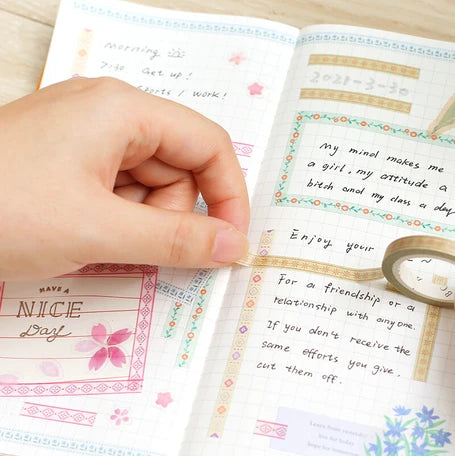 Morning
7:30 Get up!
sports / work!
HAVE A
NICE
Day
2021-3-30
My mind makes me
a girl, my attitude a
bitch and my class a day
Enjoy your
For a friendship or a
relationship with anyone.
If you don't receive the
same efforts you give,
cut them off.
Learn from yesterday
live for today
hope for tomorrow